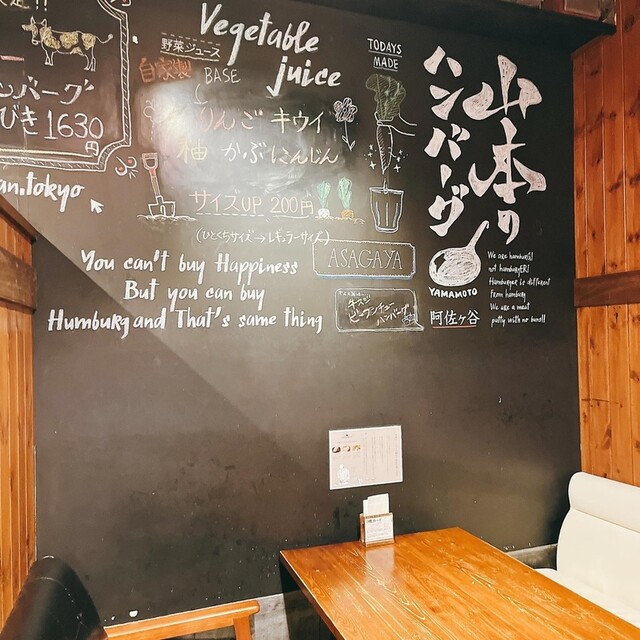 ンバーグ
びき 1630
円
an.tokyo
Vegetable
juice
野菜ジュース
自家製 BASE
りんご キウイ
柚 かぶ にんじん
サイズUP 200円
(ひとくちサイズ→レギュラーサイズ)
TODAYS
MADE
山本の
ハンバーグ
YAMAMOTO
阿佐ヶ谷
We are hamburg!
not hamburgER!
Hamburger is different
from hamburg
We are a meat
patty with no bun!!
ASAGAYA
You can't buy Happiness
But you can buy
Humburg and That's same thing
ビーフシチュー
ハンバーグ